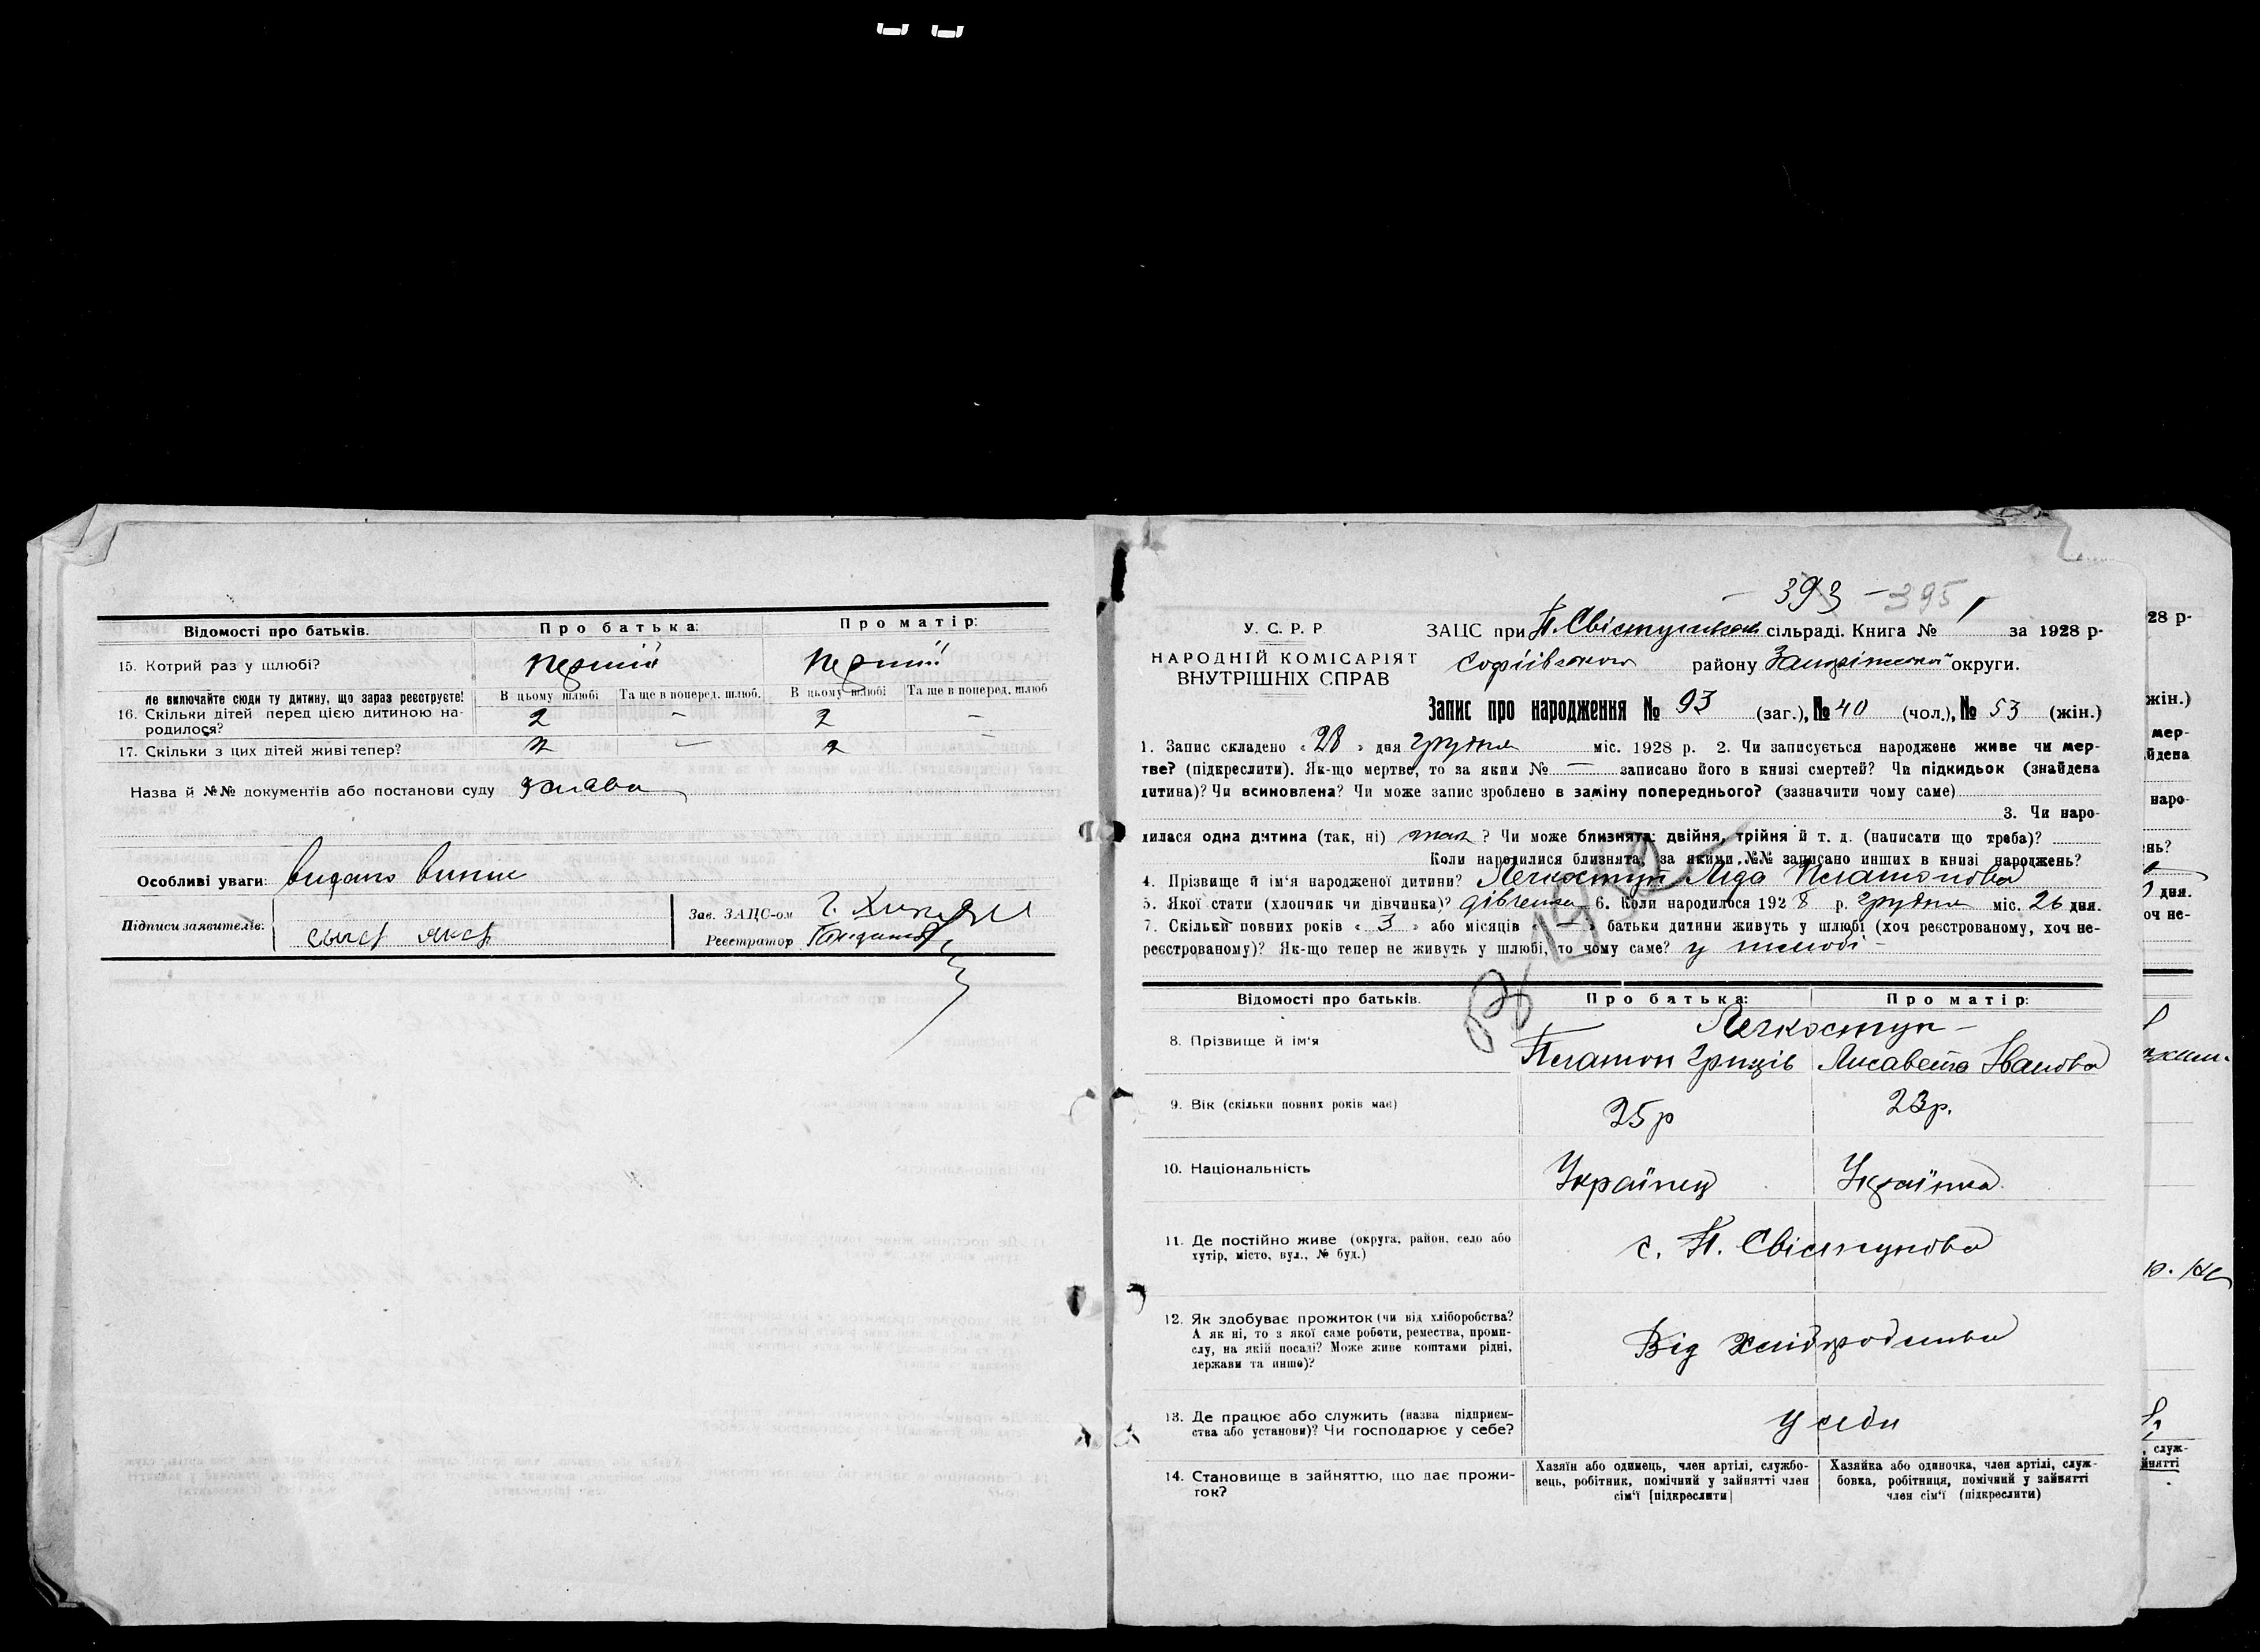 Відомості про батьків. Про батька: Про матір:
15. Котрий раз у шлюбі? перший перший
Не включайте сюди ту дитину, що зараз реєструєте! В цьому шлюбі Та ще в поперед. шлюб. В цьому шлюбі Та ще в поперед. шлюб
16. Скільки дітей перед цією дитиною на-
родилося? 2 - 2 -
17. Скільки з цих дітей живі тепер? 2 - 2 -
Назва й №№ документів або постанови суду заява
Особливі уваги: видано випис
Підписи заявителів:
Зав. ЗАЦС-ом
Реєстратор
- 393 - 395
У. С. Р. Р
НАРОДНІЙ КОМІСАРІЯТ
ВНУТРІШНІХ СПРАВ
ЗАЦС при П. Свістунівськ сільраді. Книга № 1 за 1928 р-
Софіївського району Запорізької округи.
Запис про народження № 93 (заг.), № 40 (чол.), № 53 (жін.)
1. Запис складено « 28 » дня грудня міс. 1928 р. 2. Чи записується народжене живе чи мер-
тве? (підкреслити). Як-що мертве, то за яким № — записано його в книзі смертей? Чи підкидьок (знайдена
дитина)? Чи всиновлена? Чи може запис зроблено в заміну попереднього? (зазначити чому саме)
3. Чи наро-
дилася одна дитина (так, ні) так ? Чи може близнята: двійня, трійня й т. д. (написати що треба)?
Коли народилися близнята, за якими №№ записано инших в книзі народжень?
4. Прізвище й ім'я народженої дитини? Легкоступ Ліда Платонова
5. Якої стати (хлопчик чи дівчинка)? дівчинка 6. Коли народилося 192 8 р. грудня міс. 26 дня.
7. Скільки повних років « 3 » або місяців « — » батьки дитини живуть у шлюбі (хоч реєстрованому, хоч не-
реєстрованому)? Як-що тепер не живуть у шлюбі, то чому саме? у шлюбі -
Відомості про батьків. Про батька: Про матір:
Легкоступ -
8. Прізвище й ім'я Платон Гриців Лисавета Іванова
9. Вік (скільки повних років має) 25 р 23 р.
10. Національність Українец Українка
11. Де постійно живе (округа, район, село або
хутір, місто, вул., № буд.) с. П. Свістунова
12. Як здобуває прожиток (чи від хліборобства?
А як ні, то з якої саме роботи, ремества, проми-
слу, на якій посаді? Може живе коштами рідні,
держави та инше)? Від хліборобства
13. Де працює або служить (назва підприєм-
ства або установи)? Чи господарює у себе? У себи
14. Становище в зайняттю, що дає прожи-
ток?
Хазяїн або одинець, член артілі, службо-
вець, робітник, помічний у зайнятті член
сім'ї [підкреслити]
Хазяйка або одиночка, член артілі, служ-
бовка, робітниця, помічний у зайнятті
член сім'ї (підкреслити)
28 р-
жін.)
мер-
йдена
наро-
ень?
дня.
оч не-
, служ-
йнятті